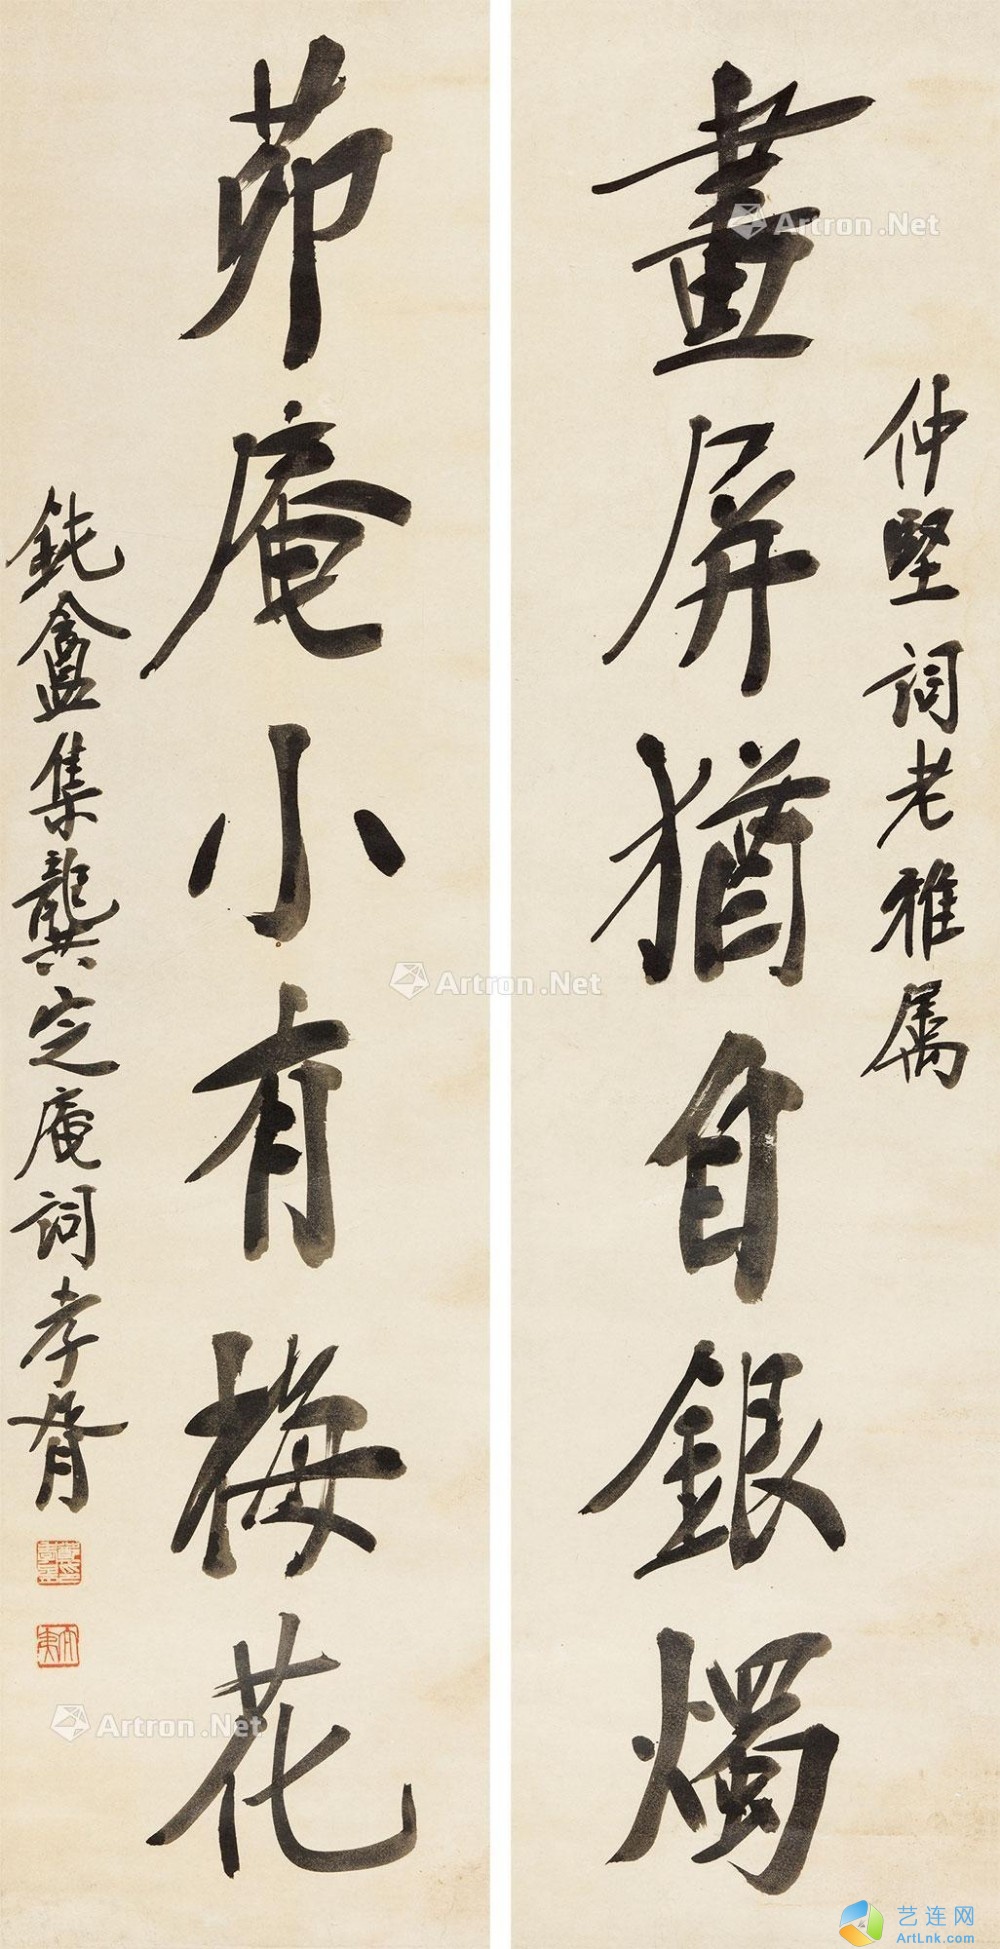 仲堅詞老雅屬
畫屏猶自銀燭
茆庵小有梅花
鈍盦集龔定庵詞孝胥
Artron.Net
Artron.Net
Artron.Net
艺连网
ArtLnk.com